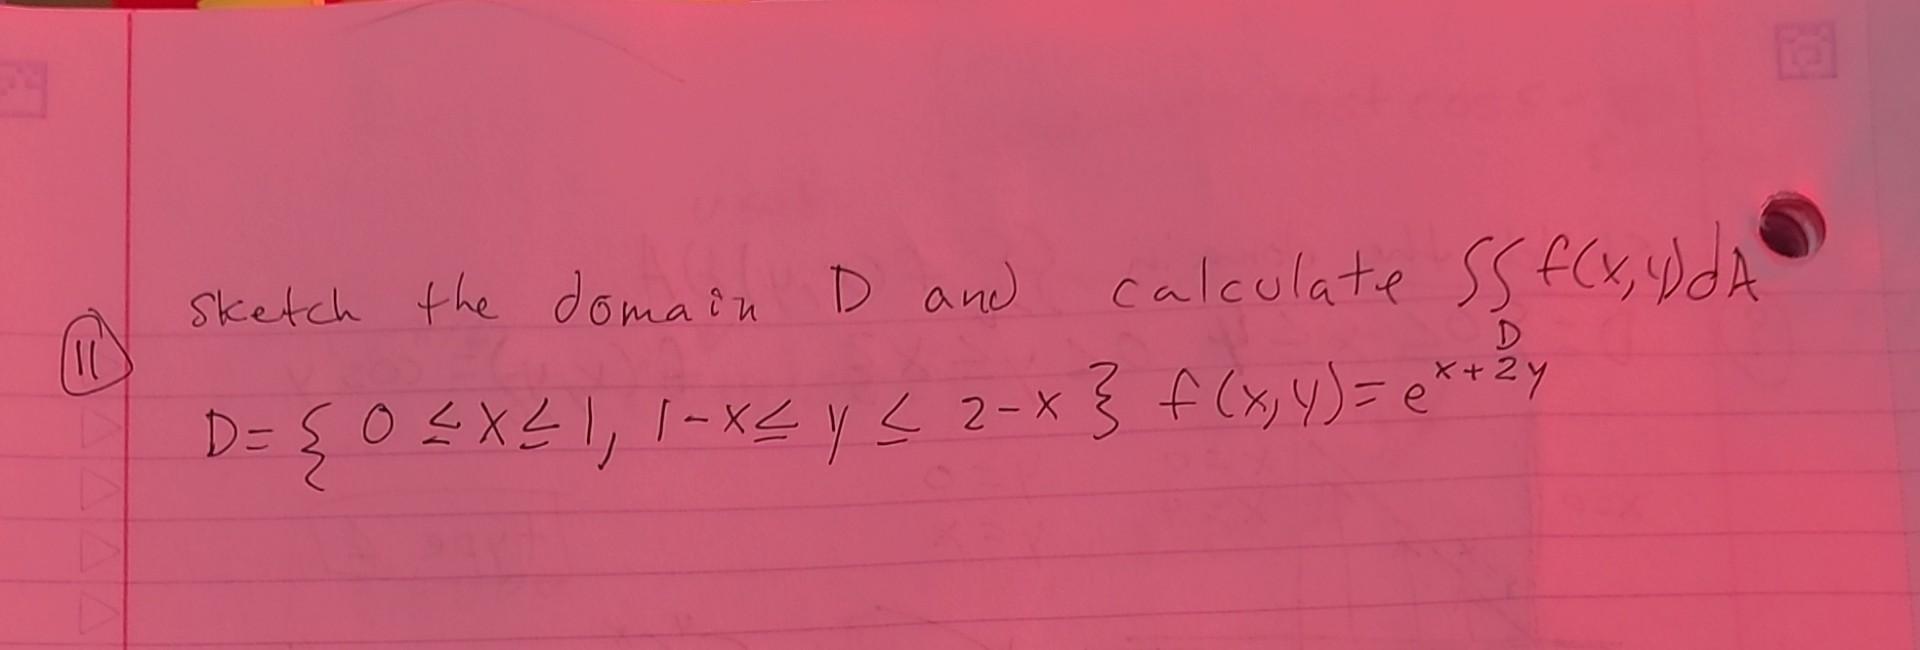 11 Sketch the domain D and calculate ∫∫ f(x,y)dA
D
D={ 0 ≤ x ≤ 1, 1-x ≤ y ≤ 2-x } f(x,y)= e^x+2y